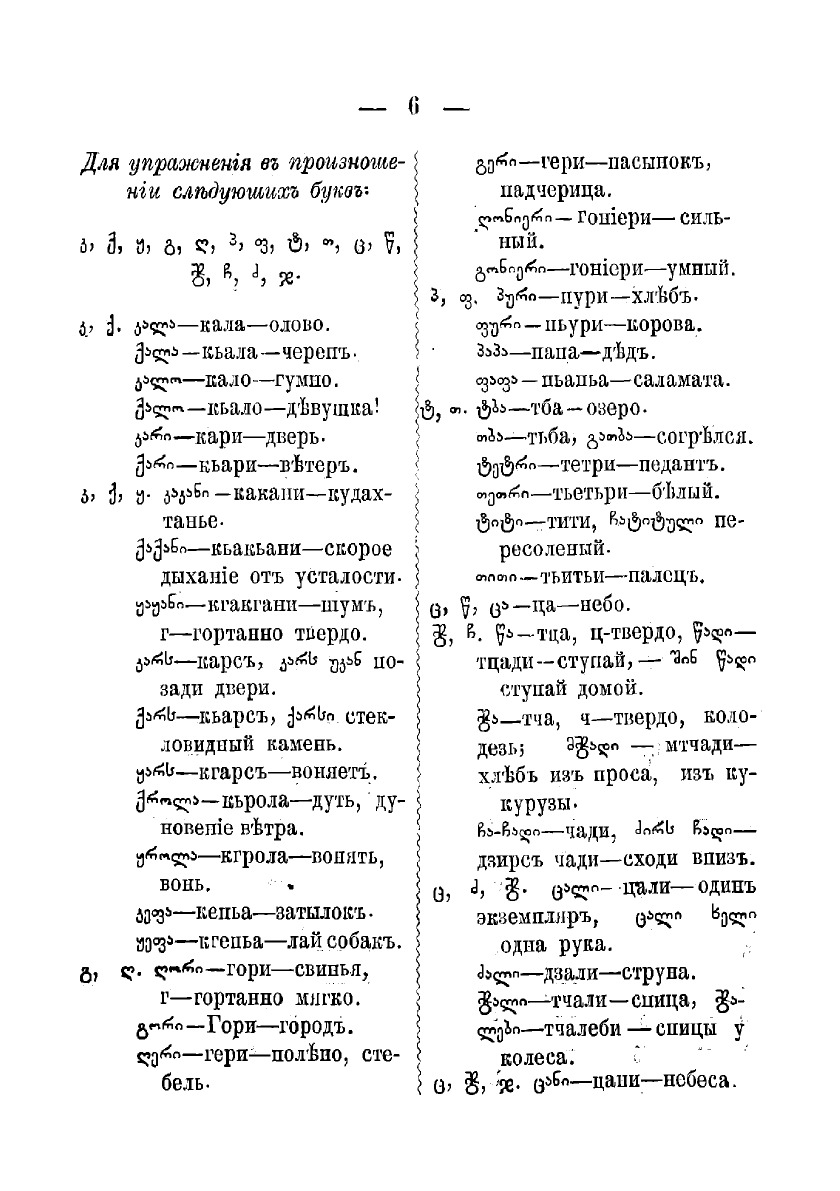 — 6 —
Для упражненія въ произноше-
ніи слѣдующихъ буквъ:
კ, ქ, ყ, გ, ღ, პ, ფ, ტ, თ, ც, წ,
ჭ, ჩ, ძ, ჯ.
კ, ქ. კალა—кала—олово.
ქალა—кьала—черепъ.
კალო—кало—гумно.
ქალო—кьало—дѣвушка!
კარი—кари—дверь.
ქარი—кьари—вѣтеръ.
კ, ქ, ყ. კაკანი—какани—кудах-
танье.
ქაქანი—кьакьани—скорое
дыханіе отъ усталости.
ყაყანი—кгакгани—шумъ,
г—гортанно твердо.
კარს—карсъ, კარს უკან по-
зади двери.
ქარს—кьарсъ, ქარსი стек-
ловидный камень.
ყარს—кгарсъ—воняетъ.
ქროლა—кьрола—дуть, ду-
новеніе вѣтра.
ყროლა—кгрола—вонять,
вонь.
კეფა—кепьа—затылокъ.
ყეფა—кгепьа—лай собакъ.
გ, ღ. ღორი—гори—свинья,
г—гортанно мягко.
გორი—Гори—городъ.
ღერი—гери—полѣно, сте-
бель.
გერი—гери—пасынокъ,
падчерица.
ღონიერი—гоніери—силь-
ный.
გონიერი—гоніери—умный.
პ, ფ. პური—пури—хлѣбъ.
ფური—пьури—корова.
პაპა—папа—дѣдъ.
ფაფა—пьапьа—саламата.
ტ, თ. ტბა—тба—озеро.
თბა—тьба, გათბა—согрѣлся.
ტეტრი—тетри—педантъ.
თეთრი—тьетьри—бѣлый.
ტიტი—тити, ჩატიტული пе-
ресоленый.
თითი—тьитьи—палецъ.
ც, წ, ცა—ца—небо.
ჭ, ჩ. წა—тца, ц-твердо, წადი—
тцади—ступай,— შინ წადი
ступай домой.
ჭა—тча, ч—твердо, коло-
дезь; მჭადი—мтчади—
хлѣбъ изъ проса, изъ ку-
курузы.
ჩა-ჩადი—чади, ძირს ჩადი—
дзирсъ чади—сходи внизъ.
ც, ძ, ჭ. ცალი—цали—одинъ
экземпляръ, ცალი ხელი
одна рука.
ძალი—дзали—струна.
ჭალი—тчали—спица, ჭა-
ლები—тчалеби—спицы у
колеса.
ც, ჭ, ჯ. ცანი—цани—небеса.